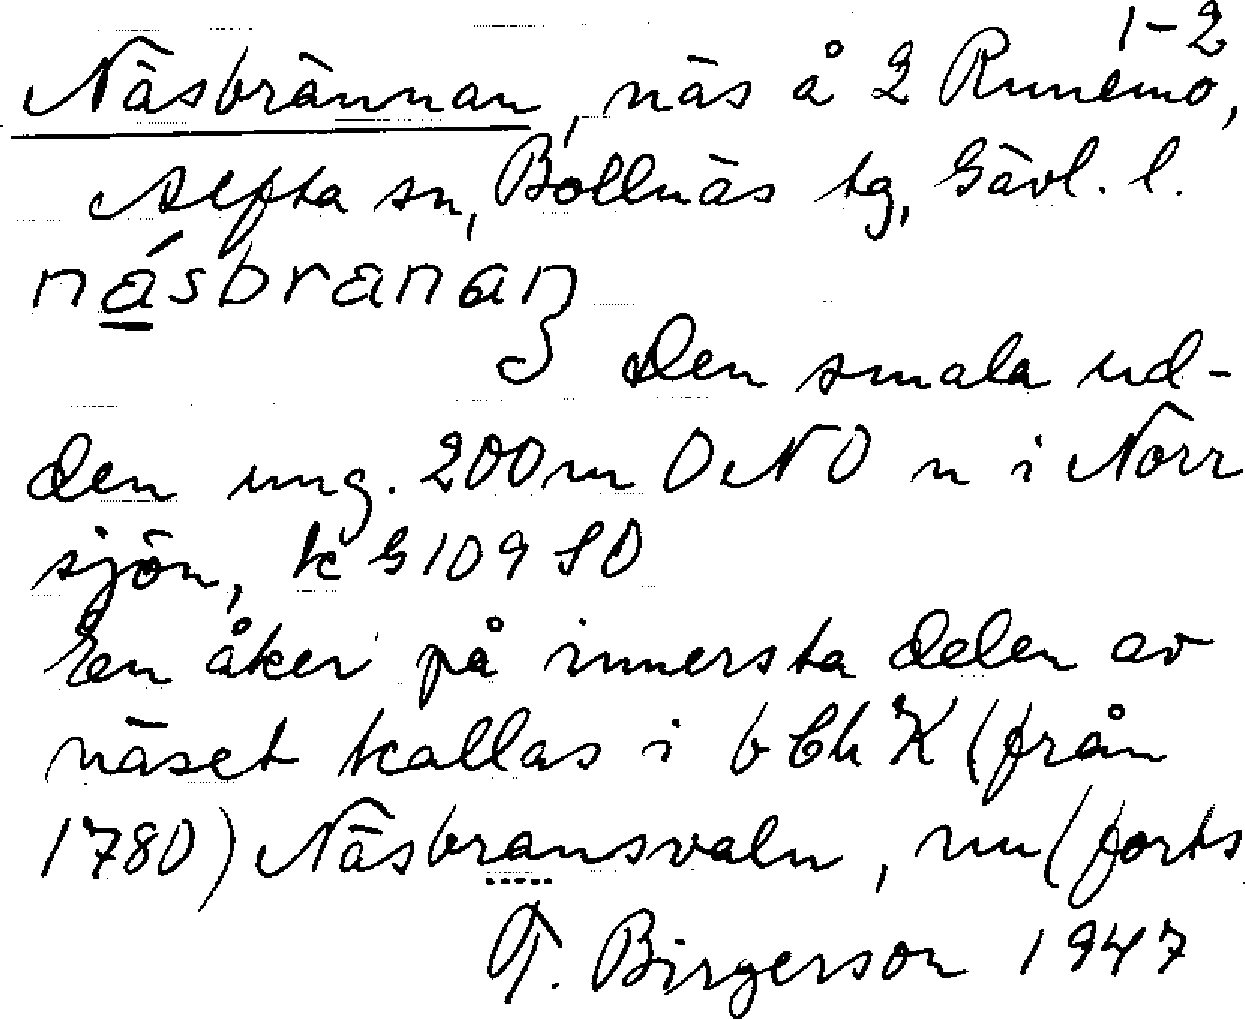 1-2
Näsbrännan, näs å 2 Runemo,
Alfta sn, Bollnäs tg, Gävl. l.
násbranan
Den smala ud-
den ung. 200 m ONO n i Norr
sjön, k G 109 SO
En åker på innersta delen av
näset kallas i b Ch K (från
1780) Näsbransvaln, nu (forts
T. Birgerson 1947